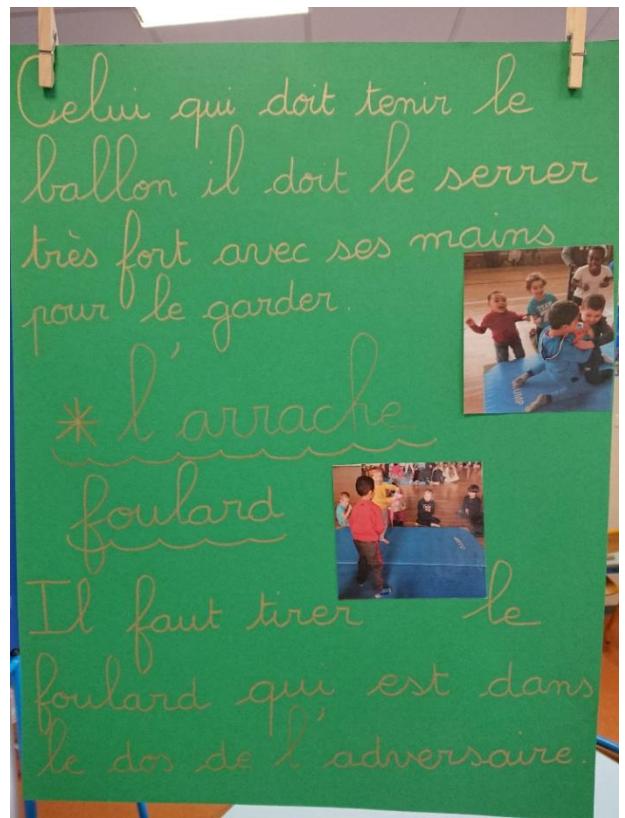 Celui qui doit tenir le
ballon il doit le serrer
très fort avec ses mains
pour le garder.
* l'arrache
foulard
Il faut tirer le
foulard qui est dans
le dos de l'adversaire.